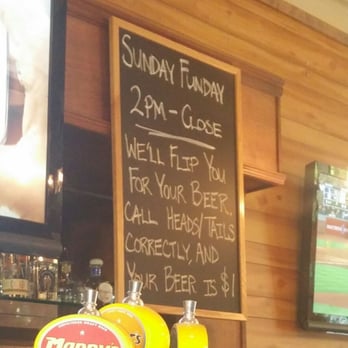 Sunday Funday
2pm - Close
We'll Flip You
For Your Beer.
Call Heads/Tails
Correctly, and
Your Beer is $1